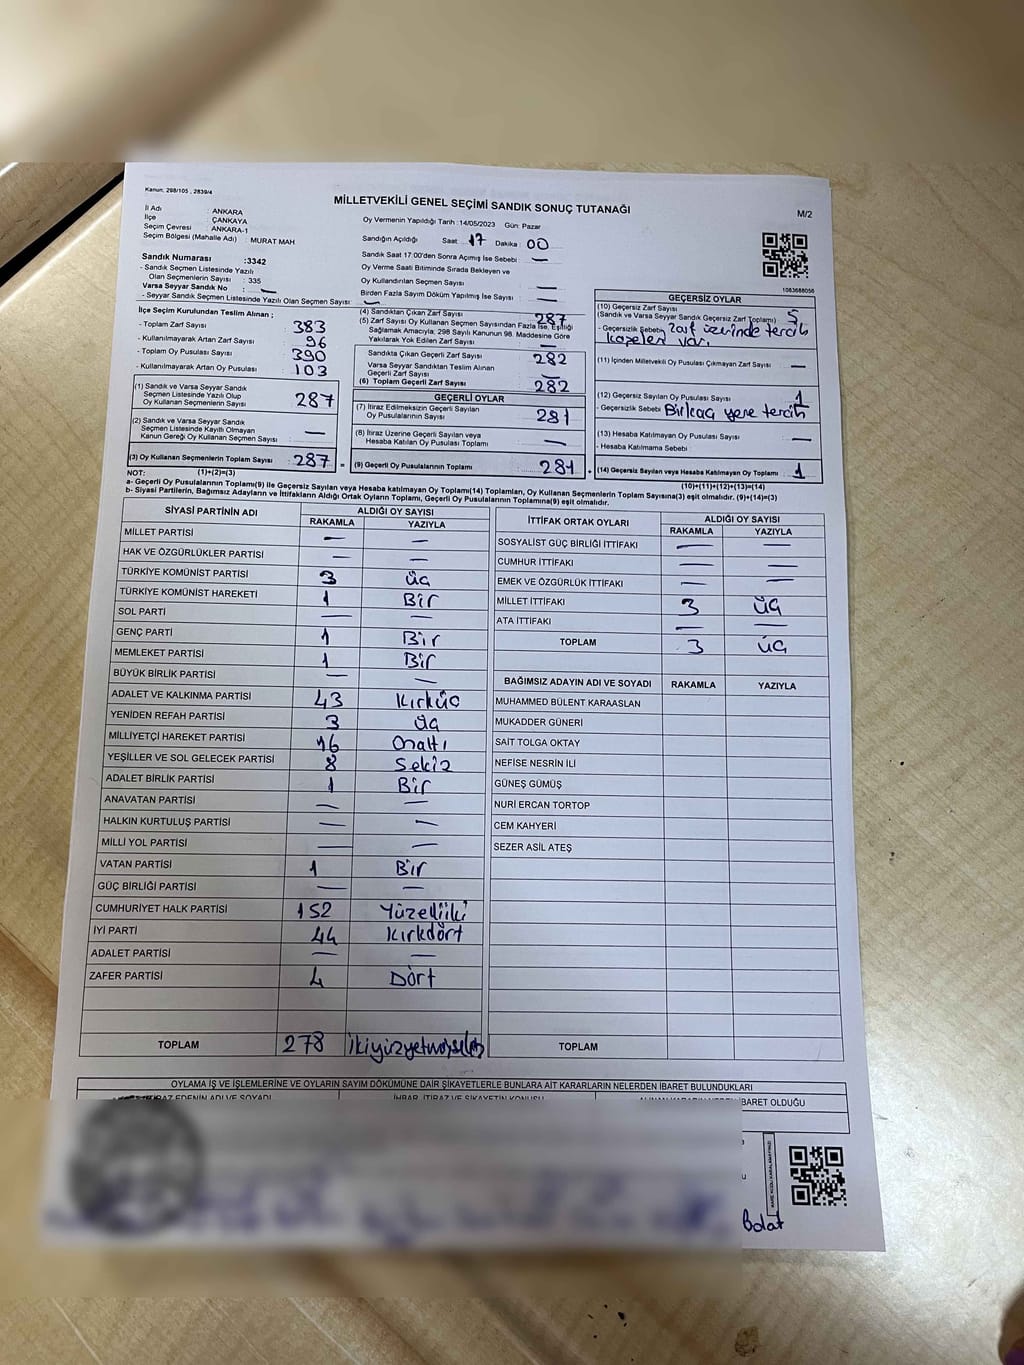 Kanun: 298/105 , 2839/4
MİLLETVEKİLİ GENEL SEÇİMİ SANDIK SONUÇ TUTANAĞI
M/2
İl Adı : ANKARA
İlçe : ÇANKAYA
Seçim Çevresi : ANKARA-1
Seçim Bölgesi (Mahalle Adı) : MURAT MAH
Sandık Numarası :3342
- Sandık Seçmen Listesinde Yazılı
Olan Seçmenlerin Sayısı : 335
Varsa Seyyar Sandık No : —
- Seyyar Sandık Seçmen Listesinde Yazılı Olan Seçmen Sayısı : —
Oy Vermenin Yapıldığı Tarih :14/05/2023 Gün: Pazar
Sandığın Açıldığı Saat 17 Dakika 00
Sandık Saat 17:00'den Sonra Açılmış İse Sebebi : —
Oy Verme Saati Bitiminde Sırada Bekleyen ve
Oy Kullandırılan Seçmen Sayısı : —
Birden Fazla Sayım Döküm Yapılmış İse Sayısı : —
1083688056
İlçe Seçim Kurulundan Teslim Alınan ;
- Toplam Zarf Sayısı : 383
- Kullanılmayarak Artan Zarf Sayısı : 96
- Toplam Oy Pusulası Sayısı : 390
- Kullanılmayarak Artan Oy Pusulası : 103
(1) Sandık ve Varsa Seyyar Sandık
Seçmen Listesinde Yazılı Olup
Oy Kullanan Seçmenlerin Sayısı : 287
(2) Sandık ve Varsa Seyyar Sandık
Seçmen Listesinde Kayıtlı Olmayan
Kanun Gereği Oy Kullanan Seçmen Sayısı : —
(3) Oy Kullanan Seçmenlerin Toplam Sayısı : 287
(1)+(2)=(3)
(4) Sandıktan Çıkan Zarf Sayısı : 287
(5) Zarf Sayısı Oy Kullanan Seçmen Sayısından Fazla İse, Eşitliği
Sağlamak Amacıyla; 298 Sayılı Kanunun 98. Maddesine Göre
Yakılarak Yok Edilen Zarf Sayısı : —
Sandıkta Çıkan Geçerli Zarf Sayısı : 282
Varsa Seyyar Sandıktan Teslim Alınan
Geçerli Zarf Sayısı : —
(6) Toplam Geçerli Zarf Sayısı : 282
GEÇERLİ OYLAR
(7) İtiraz Edilmeksizin Geçerli Sayılan
Oy Pusulalarının Sayısı : 281
(8) İtiraz Üzerine Geçerli Sayılan veya
Hesaba Katılan Oy Pusulası Toplamı : —
= (9) Geçerli Oy Pusulalarının Toplamı : 281
GEÇERSİZ OYLAR
(10) Geçersiz Zarf Sayısı
(Sandık ve Varsa Seyyar Sandık Geçersiz Zarf Toplamı) : 5
- Geçersizlik Sebebi : Zarf üzerinde tercih
kaşeleri var.
(11) İçinden Milletvekili Oy Pusulası Çıkmayan Zarf Sayısı : —
(12) Geçersiz Sayılan Oy Pusulası Sayısı : 1
- Geçersizlik Sebebi : Birkaç yere tercih
(13) Hesaba Katılmayan Oy Pusulası Sayısı : —
- Hesaba Katılmama Sebebi :
+ (14) Geçersiz Sayılan veya Hesaba Katılmayan Oy Toplamı : 1
(10)+(11)+(12)+(13)=(14)
NOT:
a- Geçerli Oy Pusulalarının Toplamı(9) ile Geçersiz Sayılan veya Hesaba Katılmayan Oy Toplamı(14) Toplamları, Oy Kullanan Seçmenlerin Toplam Sayısına(3) eşit olmalıdır. (9)+(14)=(3)
b- Siyasi Partilerin, Bağımsız Adayların ve İttifakların Aldığı Ortak Oyların Toplamı, Geçerli Oy Pusulalarının Toplamına(9) eşit olmalıdır.
SİYASİ PARTİNİN ADI ALDIĞI OY SAYISI
RAKAMLA YAZIYLA
MİLLET PARTİSİ — —
HAK VE ÖZGÜRLÜKLER PARTİSİ — —
TÜRKİYE KOMÜNİST PARTİSİ 3 üç
TÜRKİYE KOMÜNİST HAREKETİ 1 Bir
SOL PARTİ — —
GENÇ PARTİ 1 Bir
MEMLEKET PARTİSİ 1 Bir
BÜYÜK BİRLİK PARTİSİ — —
ADALET VE KALKINMA PARTİSİ 43 Kırküç
YENİDEN REFAH PARTİSİ 3 üç
MİLLİYETÇİ HAREKET PARTİSİ 16 Onaltı
YEŞİLLER VE SOL GELECEK PARTİSİ 8 Sekiz
ADALET BİRLİK PARTİSİ 1 Bir
ANAVATAN PARTİSİ — —
HALKIN KURTULUŞ PARTİSİ — —
MİLLİ YOL PARTİSİ — —
VATAN PARTİSİ 1 Bir
GÜÇ BİRLİĞİ PARTİSİ — —
CUMHURİYET HALK PARTİSİ 152 Yüzelliiki
İYİ PARTİ 44 Kırkdört
ADALET PARTİSİ — —
ZAFER PARTİSİ 4 Dört
TOPLAM 278
İTTİFAK ORTAK OYLARI ALDIĞI OY SAYISI
RAKAMLA YAZIYLA
SOSYALİST GÜÇ BİRLİĞİ İTTİFAKI — —
CUMHUR İTTİFAKI — —
EMEK VE ÖZGÜRLÜK İTTİFAKI — —
MİLLET İTTİFAKI 3 üç
ATA İTTİFAKI — —
TOPLAM 3 üç
BAĞIMSIZ ADAYIN ADI VE SOYADI RAKAMLA YAZIYLA
MUHAMMED BÜLENT KARAASLAN
MUKADDER GÜNERİ
SAİT TOLGA OKTAY
NEFİSE NESRİN İLİ
GÜNEŞ GÜMÜŞ
NURİ ERCAN TORTOP
CEM KAHYERİ
SEZER ASİL ATEŞ
TOPLAM
OYLAMA İŞ VE İŞLEMLERİNE VE OYLARIN SAYIM DÖKÜMÜNE DAİR ŞİKAYETLERLE BUNLARA AİT KARARLARIN NELERDEN İBARET BULUNDUKLARI
İBARET OLDUĞU
Bolat